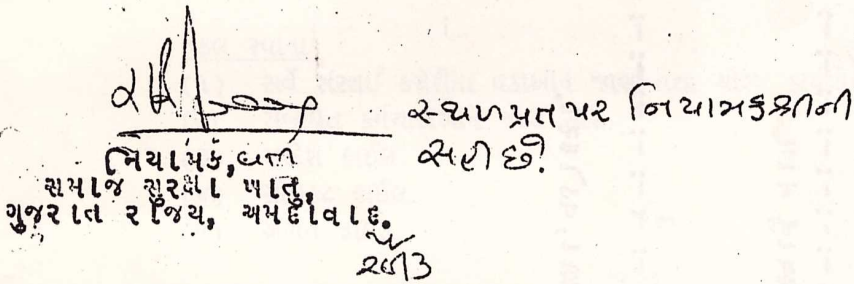 સ્થળપ્રત પર નિયામકશ્રીની
સહી છે.
નિયામક, વતી
સમાજ સુરક્ષા ખાતું,
ગુજરાત રાજય, અમદાવાદ.